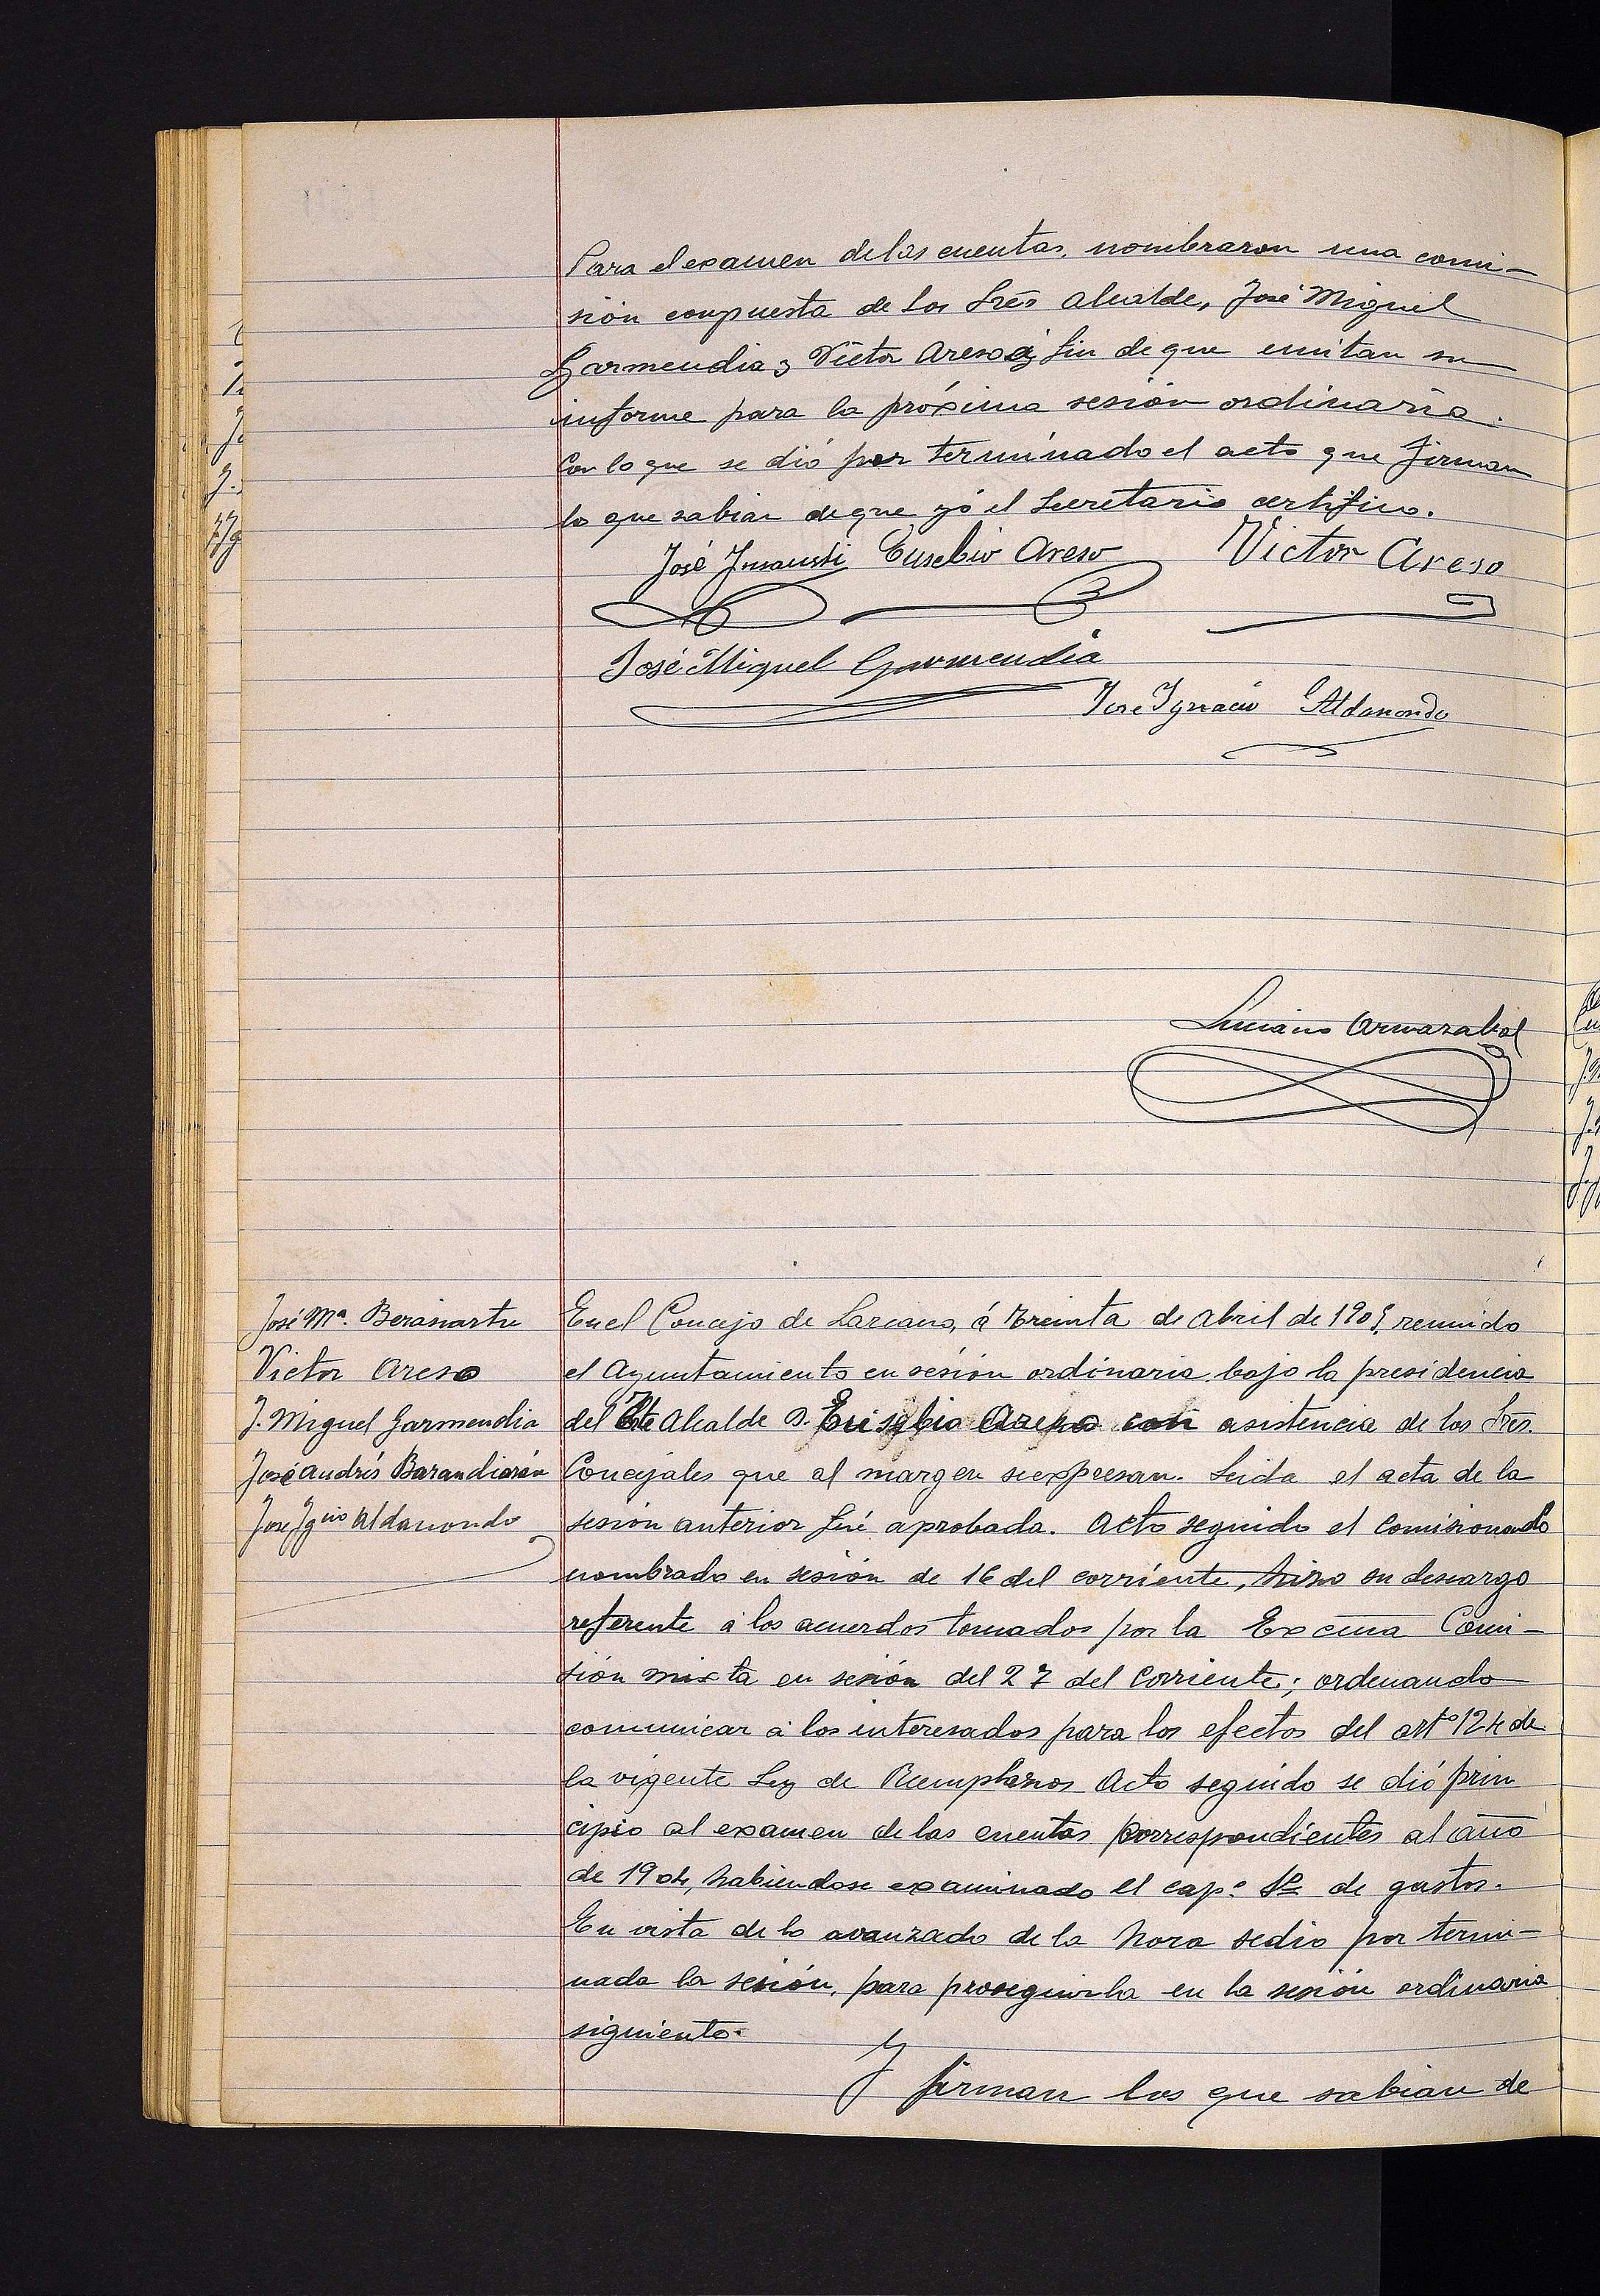 Para el examen de las cuentas, nombraron una comi-
sión conpuesta de los Srēs Alcalde, José Miguel
Garmendia y Victor Areso á fin de que emitan su
informe para la próxima sesión ordinaria.
Con lo que se dió por terminado el acto que firman
lo que sabian de que yó el Secretario certifico.
José Insausti Eusebio Areso Victor Areso
José Miguel Garmendia
José Ygnacio Aldanondo
Luciano Ormazabal
José Mª. Berasiartu
Victor Areso
J. Miguel Garmendia
José Andrés Barandiarán
José Ygnio Aldanondo
En el Concejo de Larcano, á treinta de Abril de 1905, reunido
el Ayuntamiento en sesión ordinaria bajo la presidencia
del Alcalde D. Eusebio Areso con asistencia de los Srēs.
Concejales que al margen se expresan. Leida el acta de la
sesion anterior fué aprobada. Acto seguido el Comisionado
nombrado en sesión de 16 del corriente, hizo su descargo
referente á los acuerdos tomados por la Excma Comi-
sión mixta en sesión del 27 del Corriente; ordenando
comunicar á los interesados para los efectos del artº 124 de
la vigente Ley de Reemplazos Acto seguido se dió prin
cipio al examen de las cuentas correspondientes al año
de 1904, habiendose examinado el capº 1º de gastos.
En vista de lo avanzado de la hora se dio por termi-
nada la sesión, para proseguirla en la sesión ordinaria
siguiente.
Y firman los que sabian de